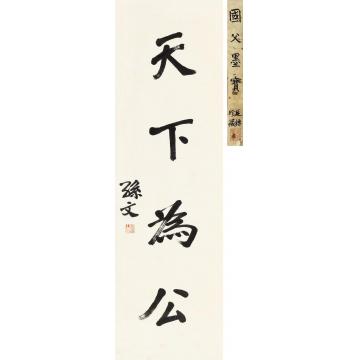 天下為公
孫文
國父墨寶